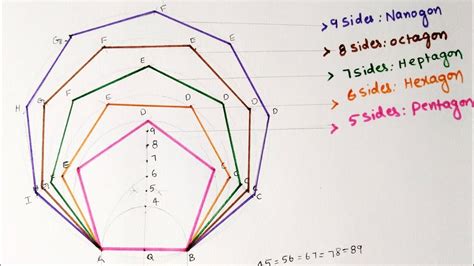 9 sides: Nanogon
8 sides: octagon
7 sides: Heptagon
6 sides: Hexagon
5 sides: Pentagon
F
G
F
E
E
H
G
F
F
E
D
D
D
D
9
8
7
6
5
4
E
C
C
I
A
Q
B
45=56=67=78=89